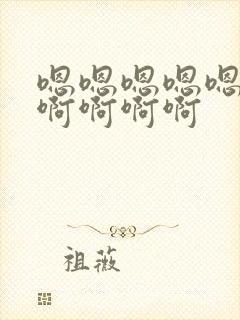 嗯嗯嗯嗯嗯
啊啊啊啊
祖薇